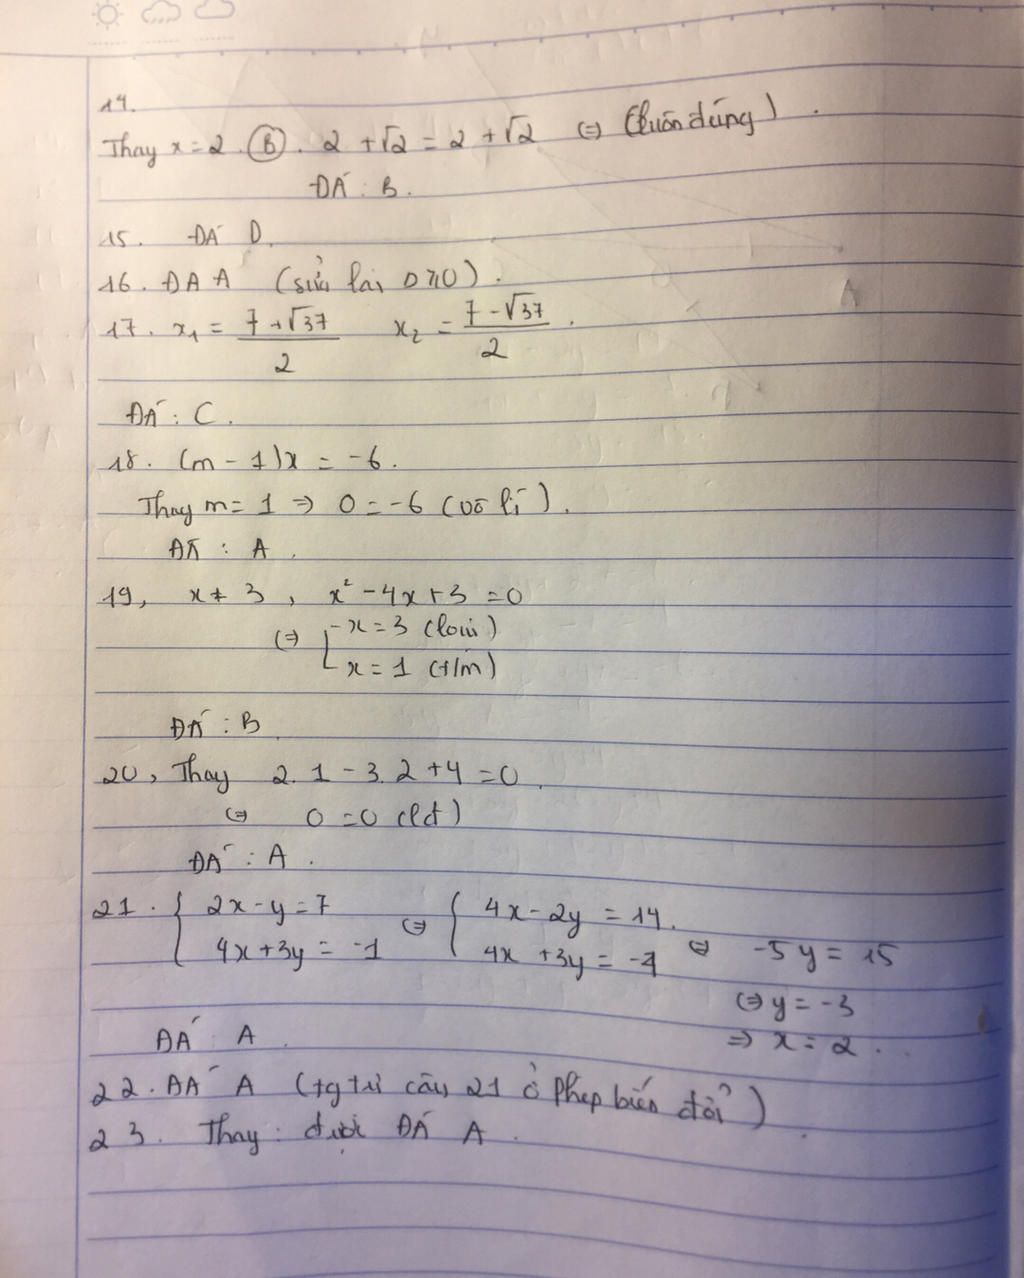 14.
Thay x = 2. (B). 2 + √2 = 2 + √2 ⇔ (luôn đúng).
ĐÁ : B.
15. ĐÁ D.
16. ĐA A (sửa lại D ≥ 0).
17. x₁ = (7 + √37)/2 x₂ = (7 - √37)/2.
ĐÁ : C.
18. (m - 1)x = -6.
Thay m = 1 ⇒ 0 = -6 (vô lí).
ĐÁ : A.
19, x ≠ 3, x² - 4x + 3 = 0
⇔ [ x = 3 (loại)
x = 1 (t/m)
ĐÁ : B.
20, Thay 2.1 - 3.2 + 4 = 0.
⇔ 0 = 0 (lđ)
ĐÁ : A.
21. { 2x - y = 7 ⇔ { 4x - 2y = 14.
4x + 3y = -1 4x + 3y = -1 ⇔ -5y = 15
⇔ y = -3
ĐÁ : A. ⇒ x = 2.
22. ĐÁ A (tg tự câu 21 ở phép biến đổi)
23. Thay : được ĐÁ A.